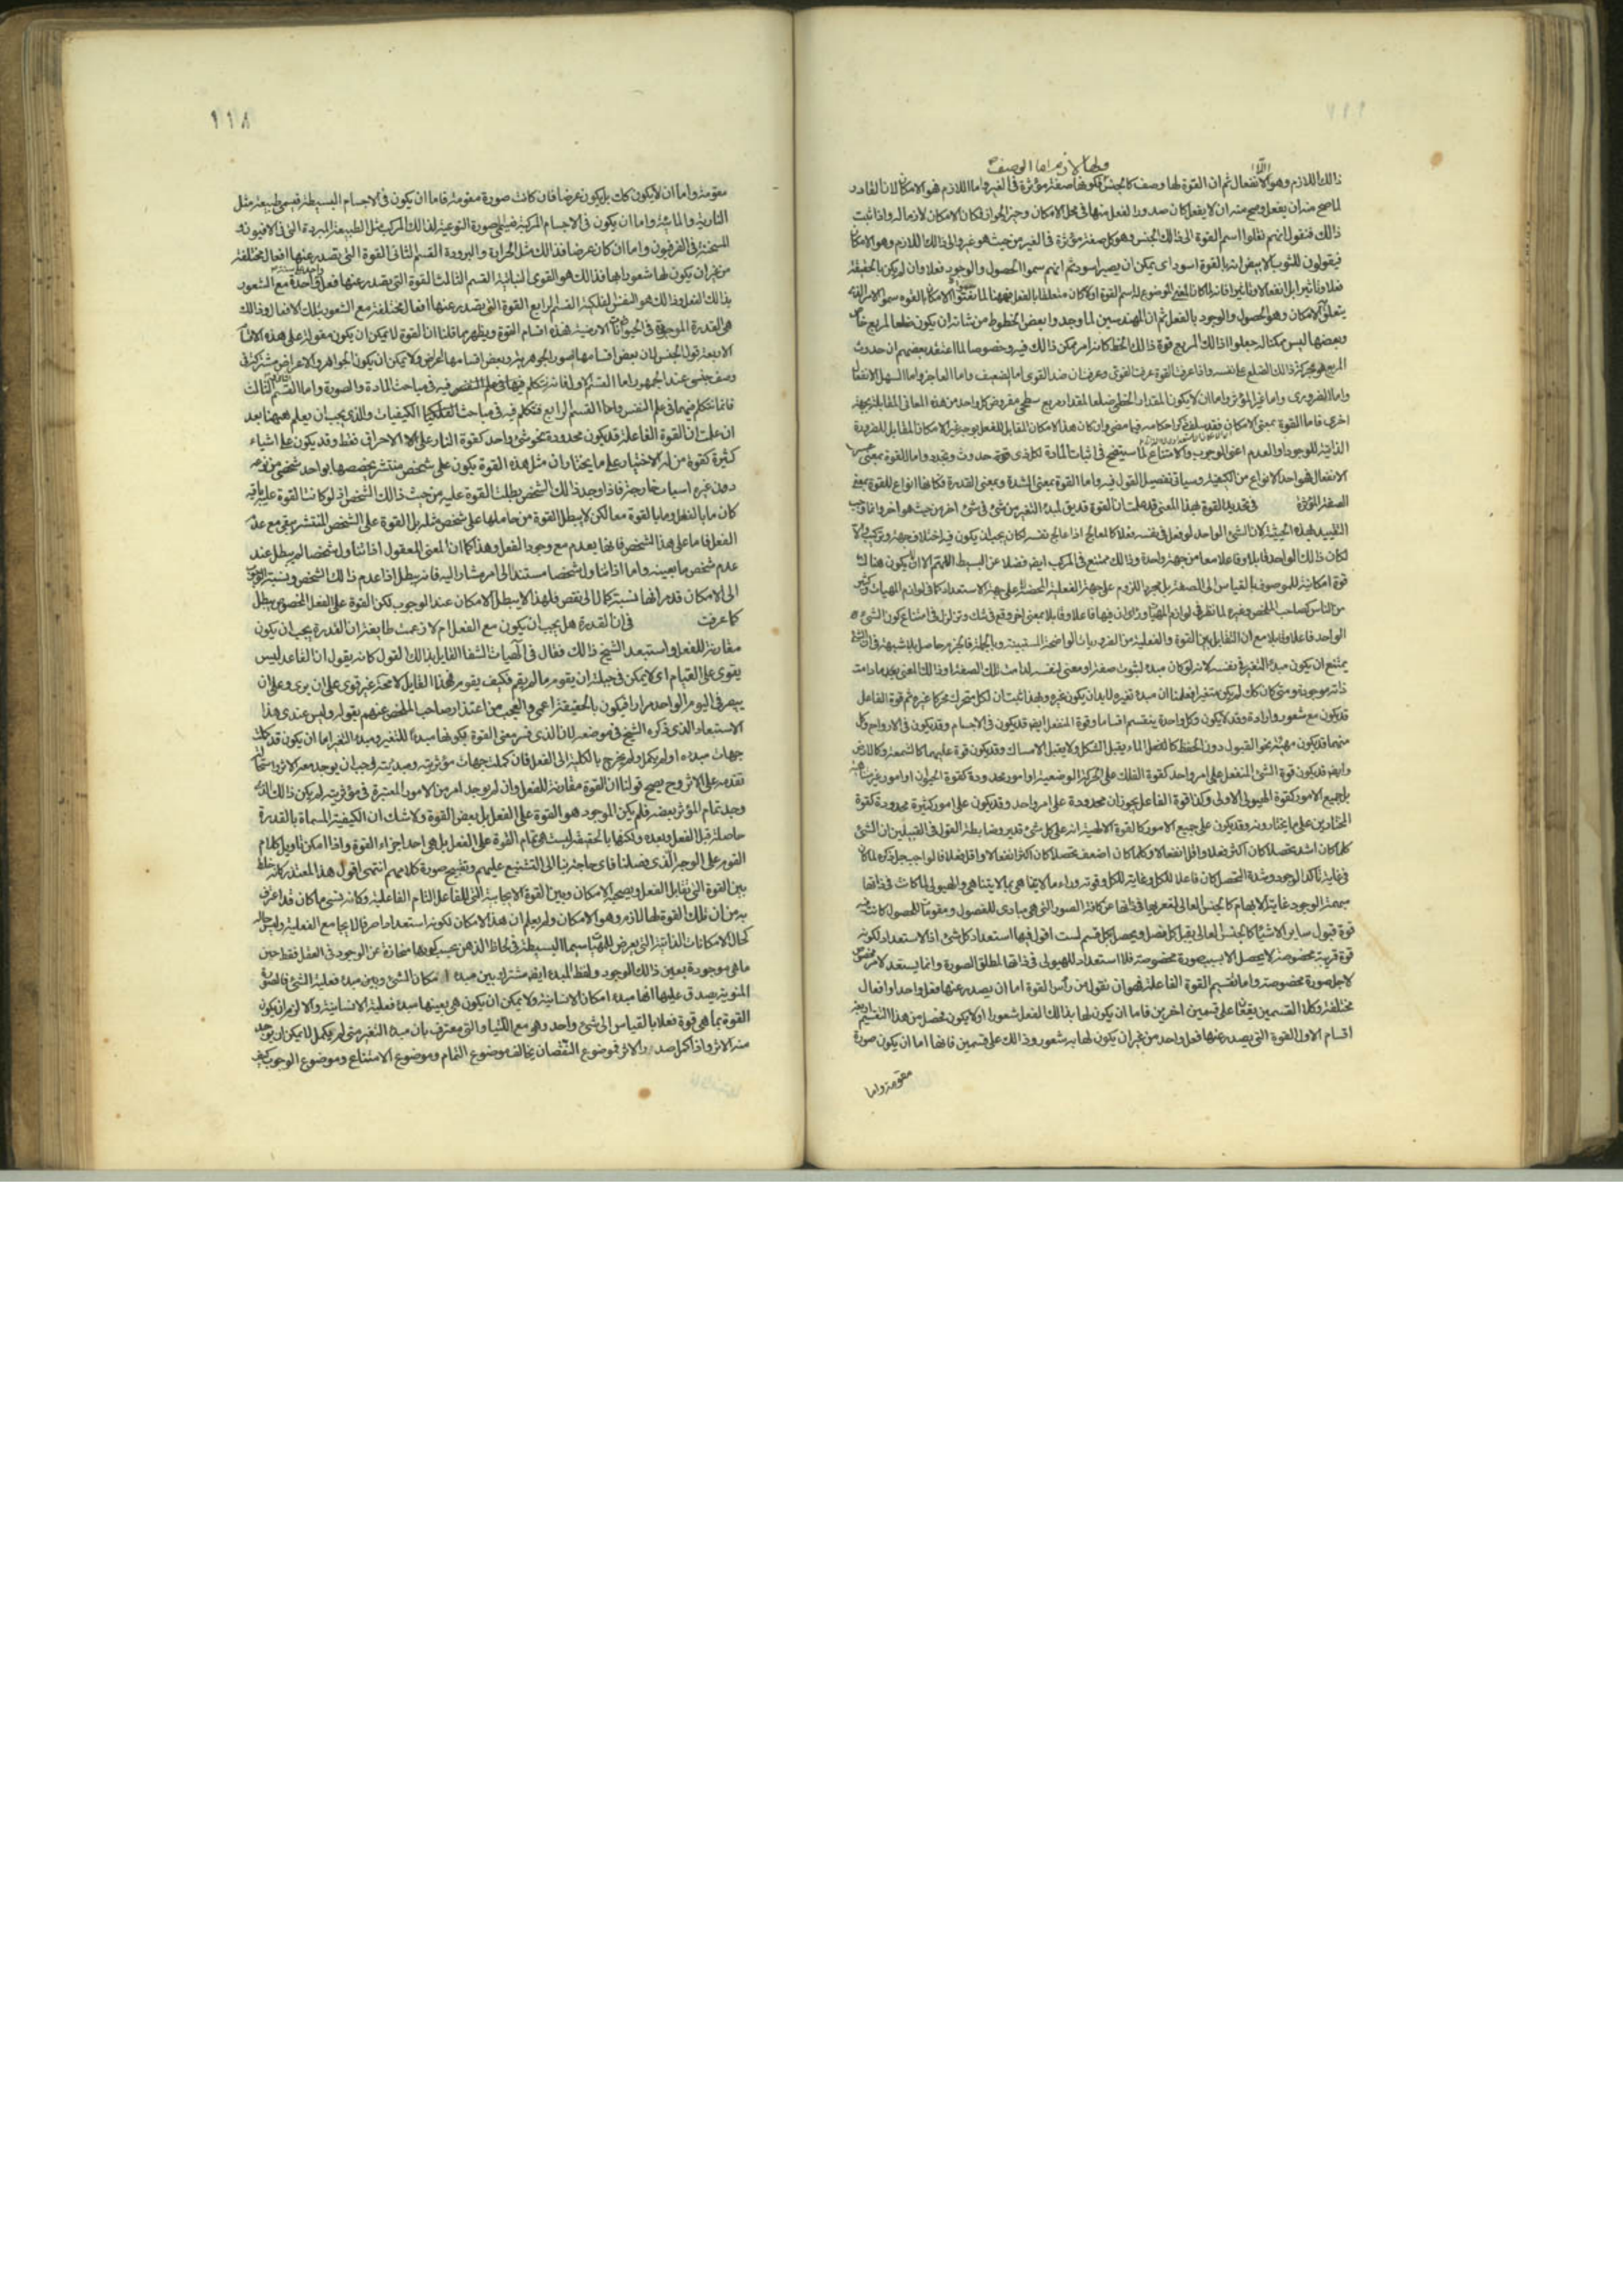 ولها لازم اما الوصف
ذالك اللازم وهو الانفعال ثم ان القوة لها وصف كالجنس فكونها صفة مؤثرة فى الغير واما اللازم فهو الامكان لان القادر
لما صح منه ان يفعل وصح منه ان لا يفعل كان صدور الفعل منها فى محل الامكان وحيز الجواز فكان الامكان لازما له واذا ثبت
ذالك فنقول انهم نقلوا اسم القوة الى ذالك الجنس وهو كل صفة مؤثرة فى الغير من حيث هو غير والى ذالك اللازم وهو الامكان
فيقولون للثوب الابيض انه بالقوة اسود اى يمكن ان يصير اسود ثم انهم سموا الحصول والوجود فعلا وان لم يكن بالحقيقة
فعلا وتاثيرا بل انفعالا وتاثرا فانه لما كان المعنى الموضوع له اسم القوة اولا كان متعلقا بالفعل فههنا لما سموا الامكان بالقوه سموا الامر الذى
يتعلق به الامكان وهو الحصول والوجود بالفعل ثم ان المهندسين لما وجدوا بعض الخطوط من شانه ان يكون ضلعا لمربع خاص
وبعضها ليس ممكنا له جعلوا ذالك المربع قوة ذالك الخط كانه امر ممكن ذالك فيه وخصوصا لما اعتقد بعضهم ان حدوث
المربع هو بحركة ذالك الضلع على نفسه واذا عرفت القوة عرفت القوى وعرفت ان ضد القوى اما الضعيف واما العاجز واما السهل الانفعال
واما الضرورى واما غير المؤثر واما ان لا يكون المقدار الخطى ضلعا لمقدار مربع سطحى مفروض كل واحد من هذه المعانى المقابلة بجهة
اخرى فاما القوة بمعنى الامكان فقد سلف ذكر احكامه فيما مضى وان كان هذا الامكان المقابل للفعل بوجه غير الامكان المقابل للضرورة
الذاتية للوجود او العدم اعنى الوجوب والامتناع لما سيتضح فى اثبات المادة لكل ذى قوة حدوث وتجدد واما القوة بمعنى
الانفعال فهو احد الانواع من الكيفية وسياتى تفصيل القول فيه واما القوة بمعنى الشدة وبمعنى القدرة فكانها انواع للقوة بمعنى
الصفة المؤثرة فى تحديد القوة بهذا المعنى قد علمت ان القوة قد يق لمبدء التغير من شئ فى شئ اخر من حيث هو اخر وانما وجب
التقييد بهذه الحيثية لان الشئ الواحد لو فعل فى نفسه فعلا كالمعالج اذا عالج نفسه لكان يجب ان يكون فيه اختلاف جهة وتركيب والا
لكان ذالك الواحد قابلا وفاعلا معا من جهة واحدة وذالك ممتنع فى المركب ايضا فضلا عن البسيط اللهم الا ان يكون هناك
قوة امكانية للموصوف بالقياس الى الصفة بل بمجرد اللزوم على جهة الفعلية المحضة لا على جهة الاستعداد كما فى لوازم المهيات وكثير
من الناس كصاحب الملخص وغيره لما نظر فى لوازم المهيات وراى ان فيها فاعلا وقابلا بمعنى اخر وقع فى شك وتزلزل فى امتناع كون الشئ
الواحد فاعلا وقابلا مع ان التقابل بين القوة والفعلية من الضروريات الواضحة المستبينة وبالجملة فالجزم حاصل بلا شبهة فى ان الشئ
يمتنع ان يكون مبدء التغير فى نفسه لانه لو كان مبدء لثبوت صفة او معنى لنفسه لدامت تلك الصفة او ذالك المعنى بدوام ما دامت
ذاته موجودة ومتى كان كك لم يكن متغيرا فعلمنا ان مبدء تغيره لابد ان يكون غيره وبهذا ثبت ان لكل متحرك محركا غيره ثم قوة الفاعل
قد يكون مع شعور وارادة وقد لا يكون وكل واحدة ينقسم اقساما وقوة المنفعل ايضا قد يكون فى الاجسام وقد يكون فى الارواح وكل
منهما قد يكون مهيئة نحو القبول دون الحفظ كما للماء يقبل الشكل ولا يقبل الامساك وقد يكون قوة عليهما كالشمعة وكالارض
وايضا قد يكون قوة الشئ المنفعل على امر واحد كقوة الفلك على الحركة الوضعية او امور محدودة كقوة الحيوان او امور غير متناهية
بل جميع الامور كقوة الهيولى الاولى وكذا قوة الفاعل يجوز ان محدودة على امر واحد وقد يكون على امور كثيرة محدودة كقوة
المختارين على ما يختارونه وقد يكون على جميع الامور كالقوة الالهية انه على كل شئ قدير وضابطة القول فى القبيلين ان الشئ
كلما كان اشد تحصلا كان اكثر فعلا واقل انفعالا وكلما كان اضعف تحصلا كان اكثر انفعالا واقل فعلا فالواجب جل ذكره لما كان
فى غاية تاكد الوجود وشدة التحصل كان فاعلا للكل وغاية للكل وقوته وراء ما لا يتناهى بما لا يتناهى والهيولى لما كانت فى ذاتها
مبهمة الوجود غاية الابهام كالجنس العالى لتعريها فى ذاتها عن كافة الصور التى هى مبادى للفصول ومقومات للحصول كانت فيه
قوة قبول ساير الاشياء كالجنس العالى يقبل كل فصل ويحصل كل قسم لست اقول فيها استعداد كل شئ اذ الاستعداد لكونه
قوة قريبة مخصوصة لا يحصل الا بسبب صورة مخصوصة فلا استعداد للهيولى فى ذاتها لمطلق الصورة وانما يستعد لامر مخصوص
لاجل صورة مخصوصة واما تقسيم القوة الفاعلة فهو ان نقول من رأس القوة اما ان يصدر عنها فعل واحد او افعال
مختلفة وكلا القسمين يقعان على قسمين اخرين فاما ان يكون لها بذالك الفعل شعور او لا يكون فحصل من هذا التقسيم اربعة
اقسام الاول القوة التى يصدر عنها فعل واحد من غير ان يكون لها به شعور وذالك على قسمين فانها اما ان يكون صورة
مقومة واما
١١٨
مقومة واما ان لا يكون كك بل يكون عرضا فان كانت صورة مقومة فاما ان يكون فى الاجسام البسيطة فيسمى طبيعة مثل
النارية والمائية واما ان يكون فى الاجسام المركبة فيسمى صورة النوعية لذالك المركب مثل الطبيعة المبردة التى فى الافيون و
المسخنة فى الفرفيون واما ان كان عرضا فذالك مثل الحرارة والبرودة القسم الثانى القوة التى يصدر عنها افعال مختلفة
من غير ان يكون لها شعور بها فذالك هو القوى النباتية القسم الثالث القوة التى يصدر عنها فعل واحدة مع الشعور
بذالك الفعل وذالك هو النفس الفلكية القسم الرابع القوة التى يصدر عنها افعال مختلفة مع الشعور بتلك الافعال وذالك
هى القدرة الموجودة فى الحيوانات الارضية فهذه اقسام القوة ويظهر مما قلنا ان القوة لا يمكن ان يكون مقولة على هذه الاقسام
الاربعة قول الجنس لان بعض اقسامها صور الجوهرية وبعض اقسامها اعراض ولا يمكن ان يكون الجواهر والاعراض مشتركة فى
وصف جنسى عند الجمهور واما القسم الاول فانه يتكلم فيها فى فيه فى مباحث المادة والصورة واما القسم الثالث
فانما نتكلم فيهما فى علم النفس واما القسم الرابع فنتكلم فيه فى مباحث الكيفيات والذى يجب ان يعلم ههنا بعد
ان علمت ان القوة الفاعلة قد يكون محدودة نحو شئ واحد كقوة النار على الاحراق فقط وقد يكون على اشياء
كثيرة كقوة من له الاختيار على ما يختار ان مثل هذه القوة يكون على شخص منتشر يخصصها بواحد شخصى من نوعه
دون غيره اسباب خارجة فاذا وجد ذالك الشخص بطلت القوة عليه من حيث ذالك الشخص اذ لو كانت القوة عليه باقية
كان ما بالفعل وما بالقوة معا لكن لا يبطل القوة من حاملها على شخص مثله بل القوة على الشخص المنتشر يبقى مع عدم
الفعل فاما على هذا الشخص فانها يعدم مع وجود الفعل وهذا كما ان المعنى المعقول اذا تناول شخصا لم يبطل عند
عدم شخص ما بعينه واما اذا تناول شخصا مستندا الى امر مشار اليه فانه يبطل اذا عدم ذالك الشخص ونسبة الوجوب
الى الامكان قد مر انها نسبة كمال الى نقص فلهذا لا يبطل الامكان عند الوجوب لكن القوة على الفعل المخصوص يبطل
كما عرفت فى ان القدرة هل يجب ان يكون مع الفعل ام لا زعمت طايفة ان القدرة يجب ان يكون
مقارنة للفعل واستبعد الشيخ ذالك فقال فى الهيات الشفا القايل بذالك القول كانه يقول ان القاعد ليس
يقوى على القيام اى لا يمكن فى جبلته ان يقوم ما لم يقم فكيف يقوم فهذا القايل لا محة غير قوى على ان يرى وعلى ان
يبصر فى اليوم الواحد مرارا فيكون بالحقيقة اعمى والعجب من اعتذار صاحب الملخص عنهم بقوله وليس عندى هذا
الاستبعاد الذى ذكره الشيخ فى موضعه لان الذى فسر معنى القوة بكونها مبدءا للتغير ومبدء التغير اما ان يكون قد كملت
جهات مبدءه او لم يكمل ولم يخرج بالكلية الى الفعل فان كملت جهات مؤثريته ومبديته وجب ان يوجد معه الاثر واستحال
تقدمه على الاثر وح يصح قولنا ان القوة مقارنة للفعل وان لم يوجد امر من الامور المعتبرة فى مؤثريته لم يكن ذالك الذى
وجد تمام المؤثر بعضه فلم يكن الموجود هو القوة على الفعل بل بعض القوة ولا شك ان الكيفية المسماة بالقدرة
حاصلة قبل الفعل وبعده ولكنها بالحقيقة ليست هى تمام القوة على الفعل بل هى احد اجزاء القوة واذا امكن تاويل كلام
القوم على الوجه الذى فصلنا فاى حاجة بنا الى التشنيع عليهم وتقبيح صورة كلامهم انتهى اقول هذا المعتذر كانه خلط
بين القوة التى تقابل الفعل ويصحبه الامكان وبين القوة الايجابية التى للفاعل التام الفاعلية وكانه نسى ما كان قد اعرف
به من ان تلك القوة لها لازم وهو الامكان ولم يعلم ان هذا الامكان لكونه استعدادا صرفا لا يجامع مع الفعلية وليس حاله
كحال الامكانات الذاتية التى يعرض للمهيات سيما البسيطة فى لحاظ الذهن بحسب كونها منحازة عن الوجود فى العقل فقط حين
ما هى موجودة بعين ذالك الوجود ولفظ المبدء ايضا مشترك بين مبدء امكان الشئ وبين مبدء فعلية الشئ فالصورة
المنوية يصدق عليها انها مبدء امكان الانسانية ولا يمكن ان يكون هى بعينها مبدء فعلية الانسانية والا لزم ان يكون
القوة بما هى قوة فعلا بالقياس الى شئ واحد وهو مع اللتيا والتى معترف بان مبدء التغير متى لم يكمل لا يمكن ان يوجد
منه الاثر واذا كمل صدر الاثر فموضوع النقصان يخالف موضوع التمام وموضوع الامتناع وموضوع الوجوب